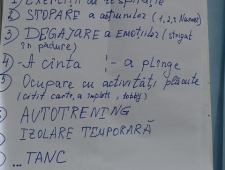 1) Exerciții de respirație
2) STOPARE a acțiunilor (1,2,3
3) DEGAJARE a EMOȚIILOR (strigat
în pădure)
4) - A cînta - a plînge
5) Ocupare cu activități plăcute
(citit carte, a împleti, hobby)
AUTOTRENING
IZOLARE TEMPORARĂ
... TANC